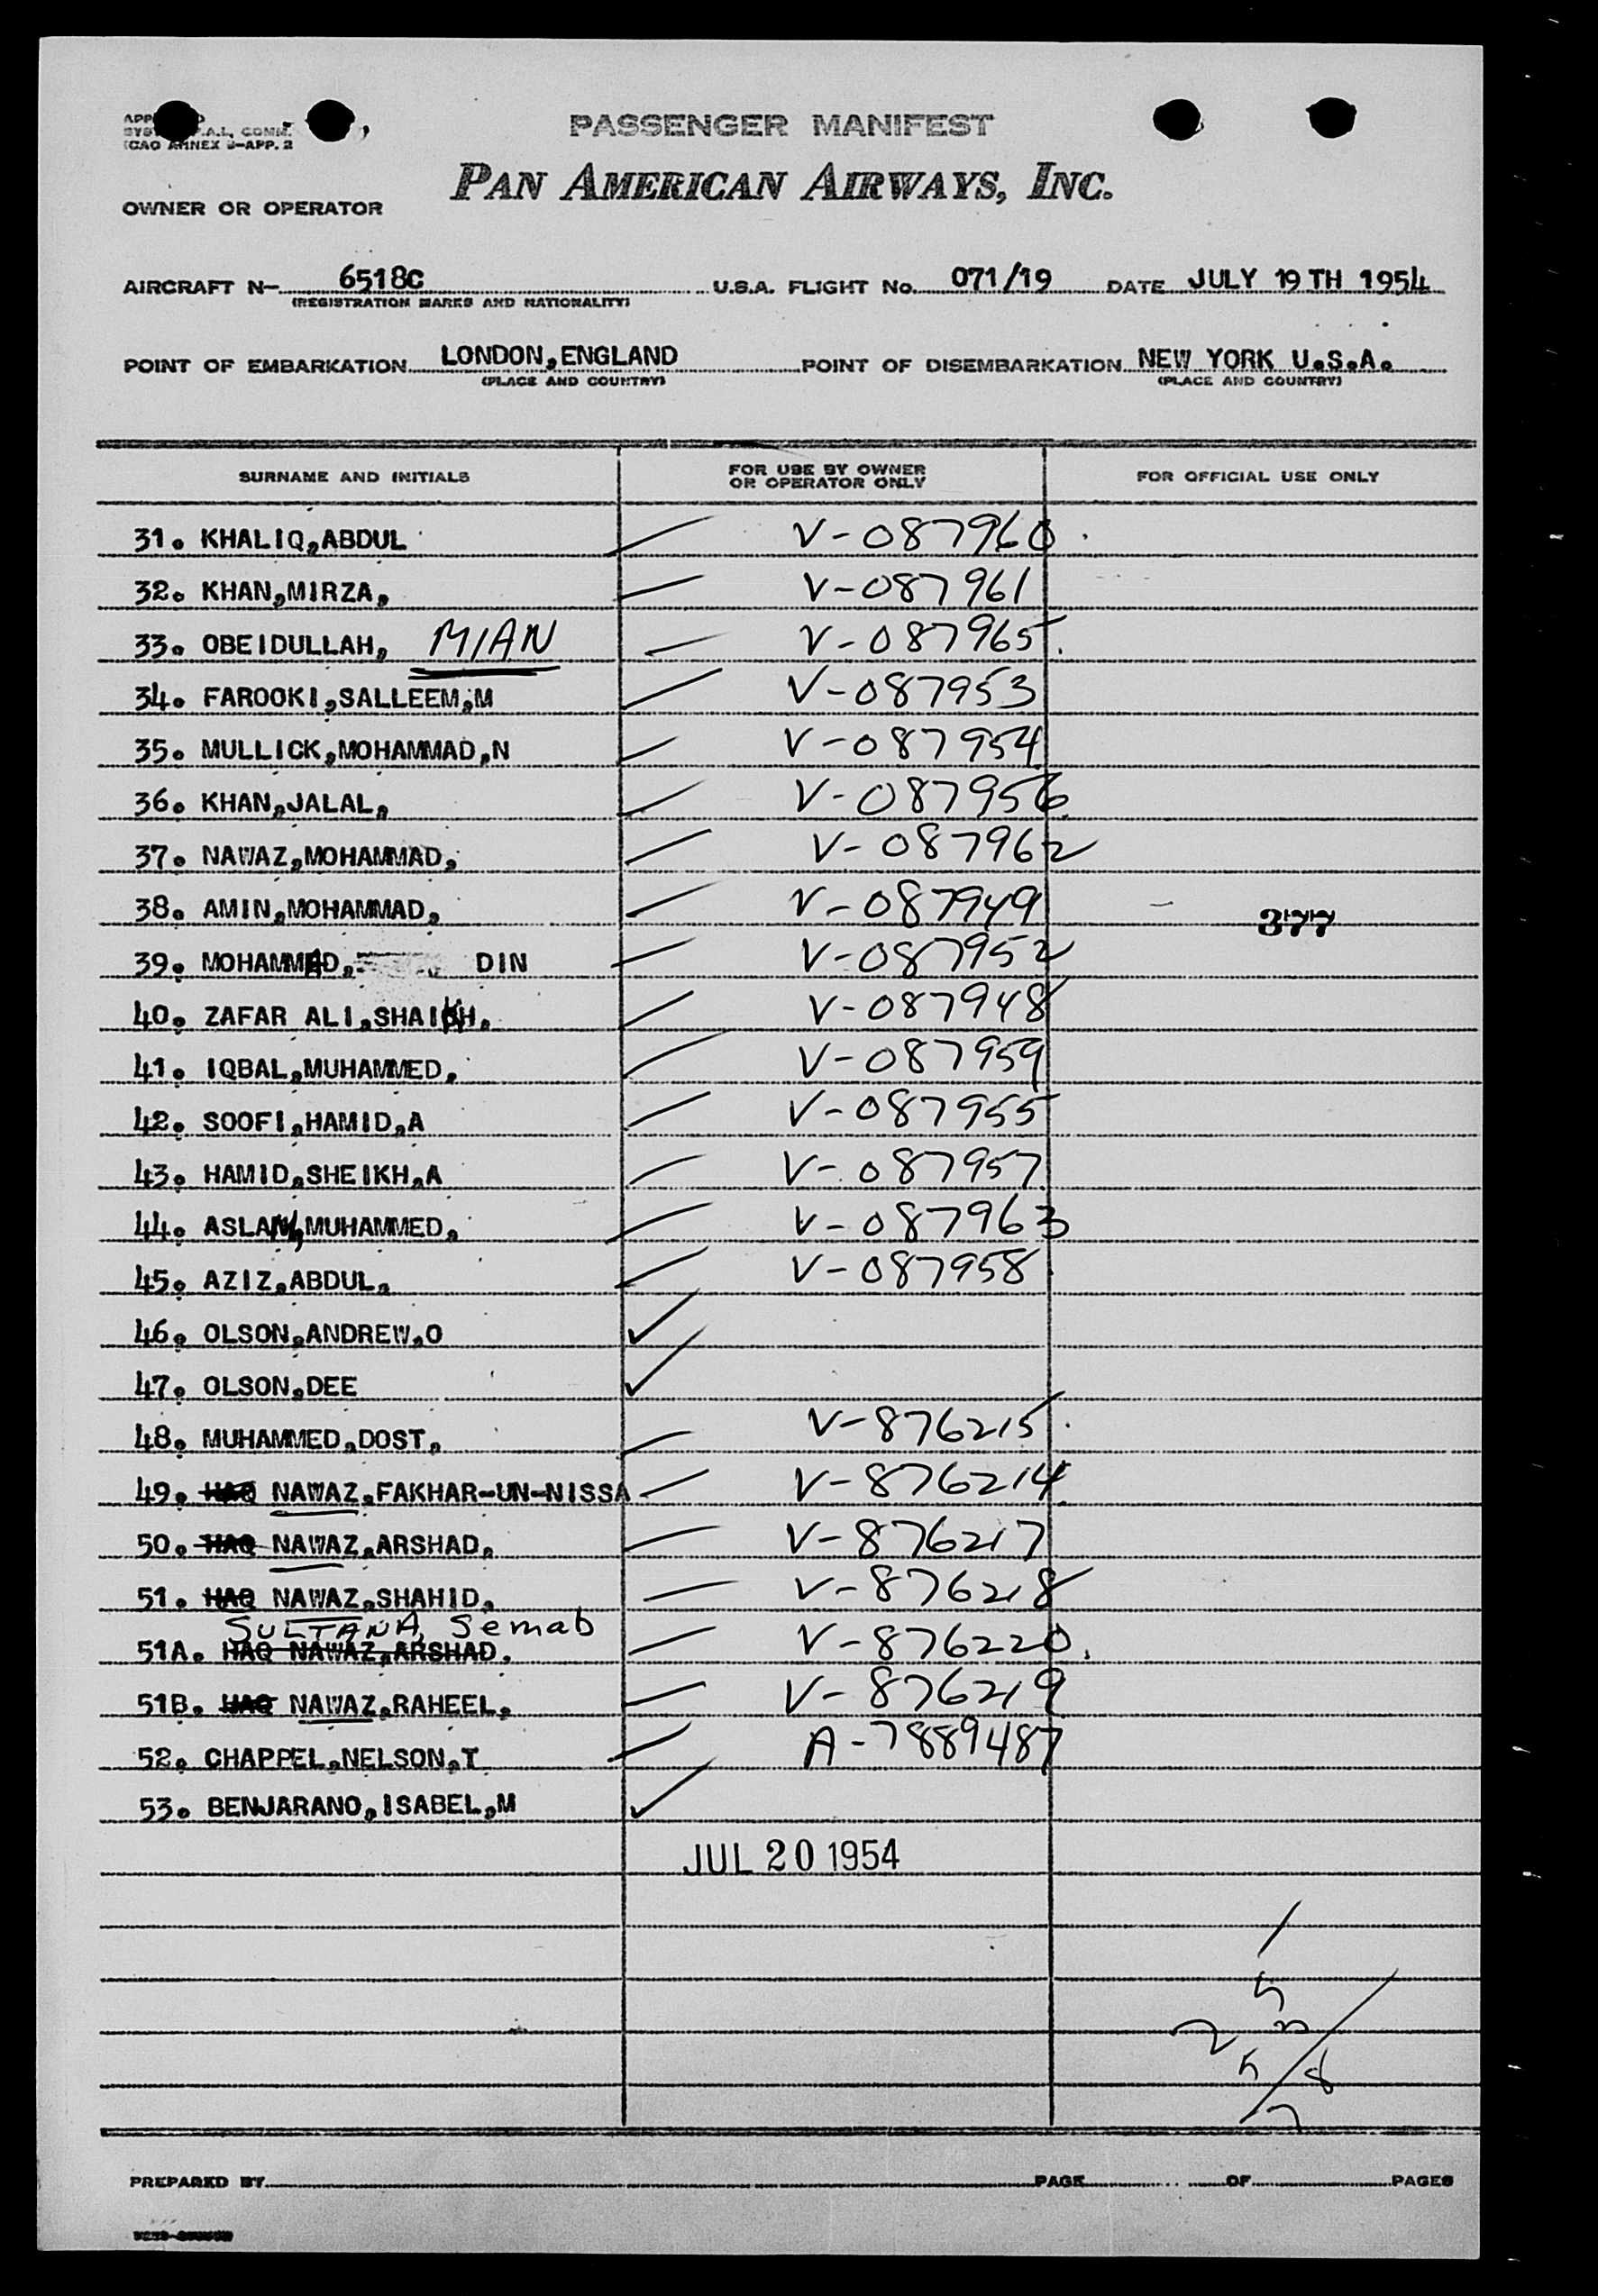 PASSENGER MANIFEST
CAO ANNEX 9-APP. 2
PAN AMERICAN AIRWAYS, INC.
OWNER OR OPERATOR
AIRCRAFT N- 6518C U.S.A. FLIGHT No. 071/19 DATE JULY 19 TH 1954
(REGISTRATION MARKS AND NATIONALITY)
POINT OF EMBARKATION LONDON, ENGLAND POINT OF DISEMBARKATION NEW YORK U.S.A.
(PLACE AND COUNTRY) (PLACE AND COUNTRY)
SURNAME AND INITIALS FOR USE BY OWNER OR OPERATOR ONLY FOR OFFICIAL USE ONLY
31. KHALIQ,ABDUL V-087960
32. KHAN,MIRZA, V-087961
33. OBEIDULLAH, MIAN V-087965.
34. FAROOKI,SALLEEM,M V-087953
35. MULLICK,MOHAMMAD,N V-087954
36. KHAN,JALAL, V-087956
37. NAWAZ,MOHAMMAD, V-087962
38. AMIN,MOHAMMAD, V-087949 377
39. MOHAMMAD, DIN V-087952
40. ZAFAR ALI,SHAIKH, V-087948
41. IQBAL,MUHAMMED, V-087959
42. SOOFI,HAMID,A V-087955
43. HAMID,SHEIKH,A V-087957
44. ASLAM,MUHAMMED, V-087963
45. AZIZ,ABDUL, V-087958
46. OLSON,ANDREW,O
47. OLSON,DEE
48. MUHAMMED,DOST, V-876215
49. HAQ NAWAZ,FAKHAR-UN-NISSA V-876214
50. HAQ NAWAZ,ARSHAD, V-876217
51. HAQ NAWAZ,SHAHID, V-876218
SULTANA, Semab
51A. HAQ NAWAZ,ARSHAD. V-876220
51B. HAQ NAWAZ,RAHEEL, V-876219
52. CHAPPEL,NELSON,T A-7889487
53. BENJARANO,ISABEL,M
JUL 20 1954
PREPARED BY PAGE OF PAGES